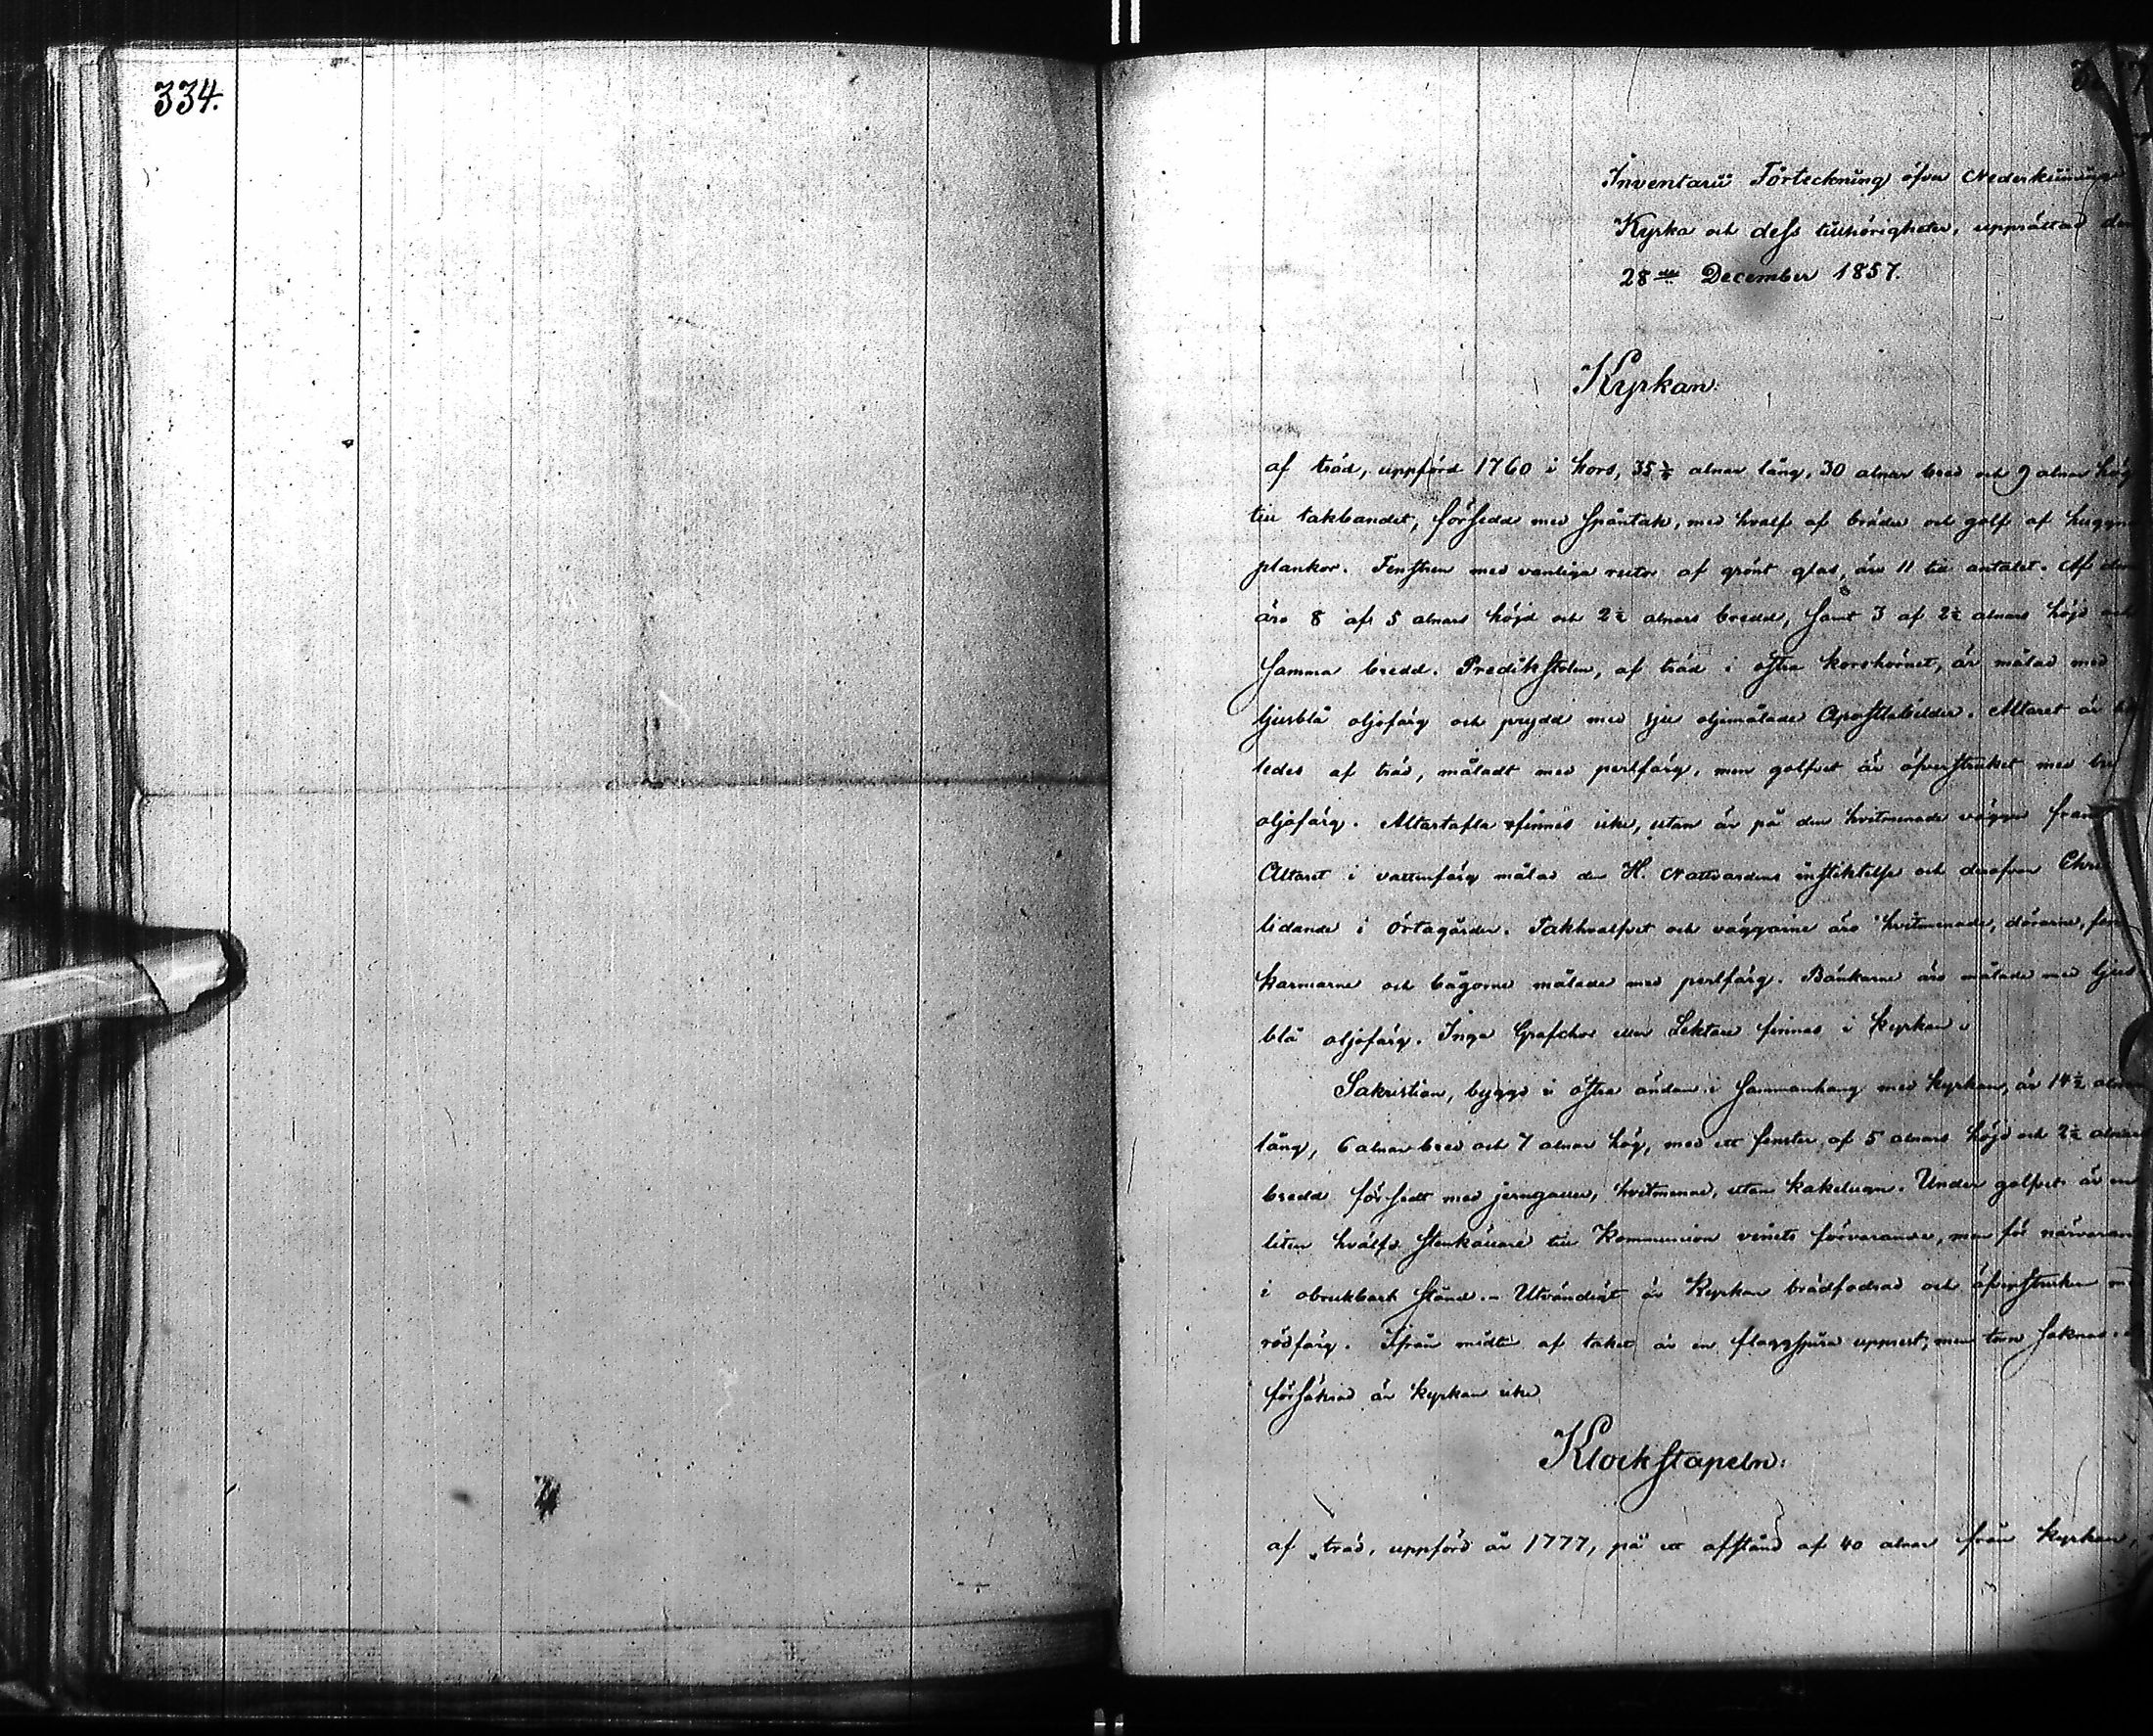 334.
Inventarii Förteckning öfver Nederkurunga
Kyrka och dess tillhörigheter, upprättad den
28de December 1857.
Kyrkan.
af träd, uppförd 1760 i kors, 35 ½ alnar lång, 30 alnar bred och 9 alnar hög
till takbandet, försedd med spåntak, med hvalf af bräder och golf af huggna
plankor. Fenstren med vanliga rutor af grönt glas, äro 11 till antalet. Af dem
äro 8 af 5 alnars höjd och 2½ alnars bredd, samt 3 af 2½ alnars höjd och
samma bredd. Predikstolen, af träd i östra korshörnet, är målad med
ljusblå oljefärg och prydd med sju oljemålade Apostlabilder. Altaret är
ledes af träd, måladt med perlfärg, men golfvet är öfverstruket med
oljefärg. Altartafla finnes icke, utan är på den hvitmenade väggen
Altaret i vattenfärg målad den H. Nattvardens instiktelse och derofvan
lidande i örtagården. Takhvalfvet och väggarne äro hvitmenade, dörarne,
karmarne och bågorne målade med perlfärg. Bänkarne äro målade med ljus
blå oljefärg. Inga Grafchor eller Lektare finnas i kyrkan.
Sakristian, byggd i östra ändan i sammanhang med kyrkan, är 14½ alnar
lång, 6 alnar bred och 7 alnar hög, med ett fenster af 5 alnars höjd och 2½ alnars
bredd försedt med jerngaller, hvitmenad, utan kakelugn. Under golfvet är en
liten hvälfd stenkällare till Kommunion vinets förvarande, men för närvaran
i obrukbart stånd. – Utvändigt är Kyrkan brädfodrad och öfverstruken
rödfärg. Ifrån midten af taket är en flaggspira uppsatt, men torn saknas.
försäkrad är kyrkan icke
Klockstapeln:
af träd, uppförd år 1777, på ett afstånd af 40 alnar från kyrkan,